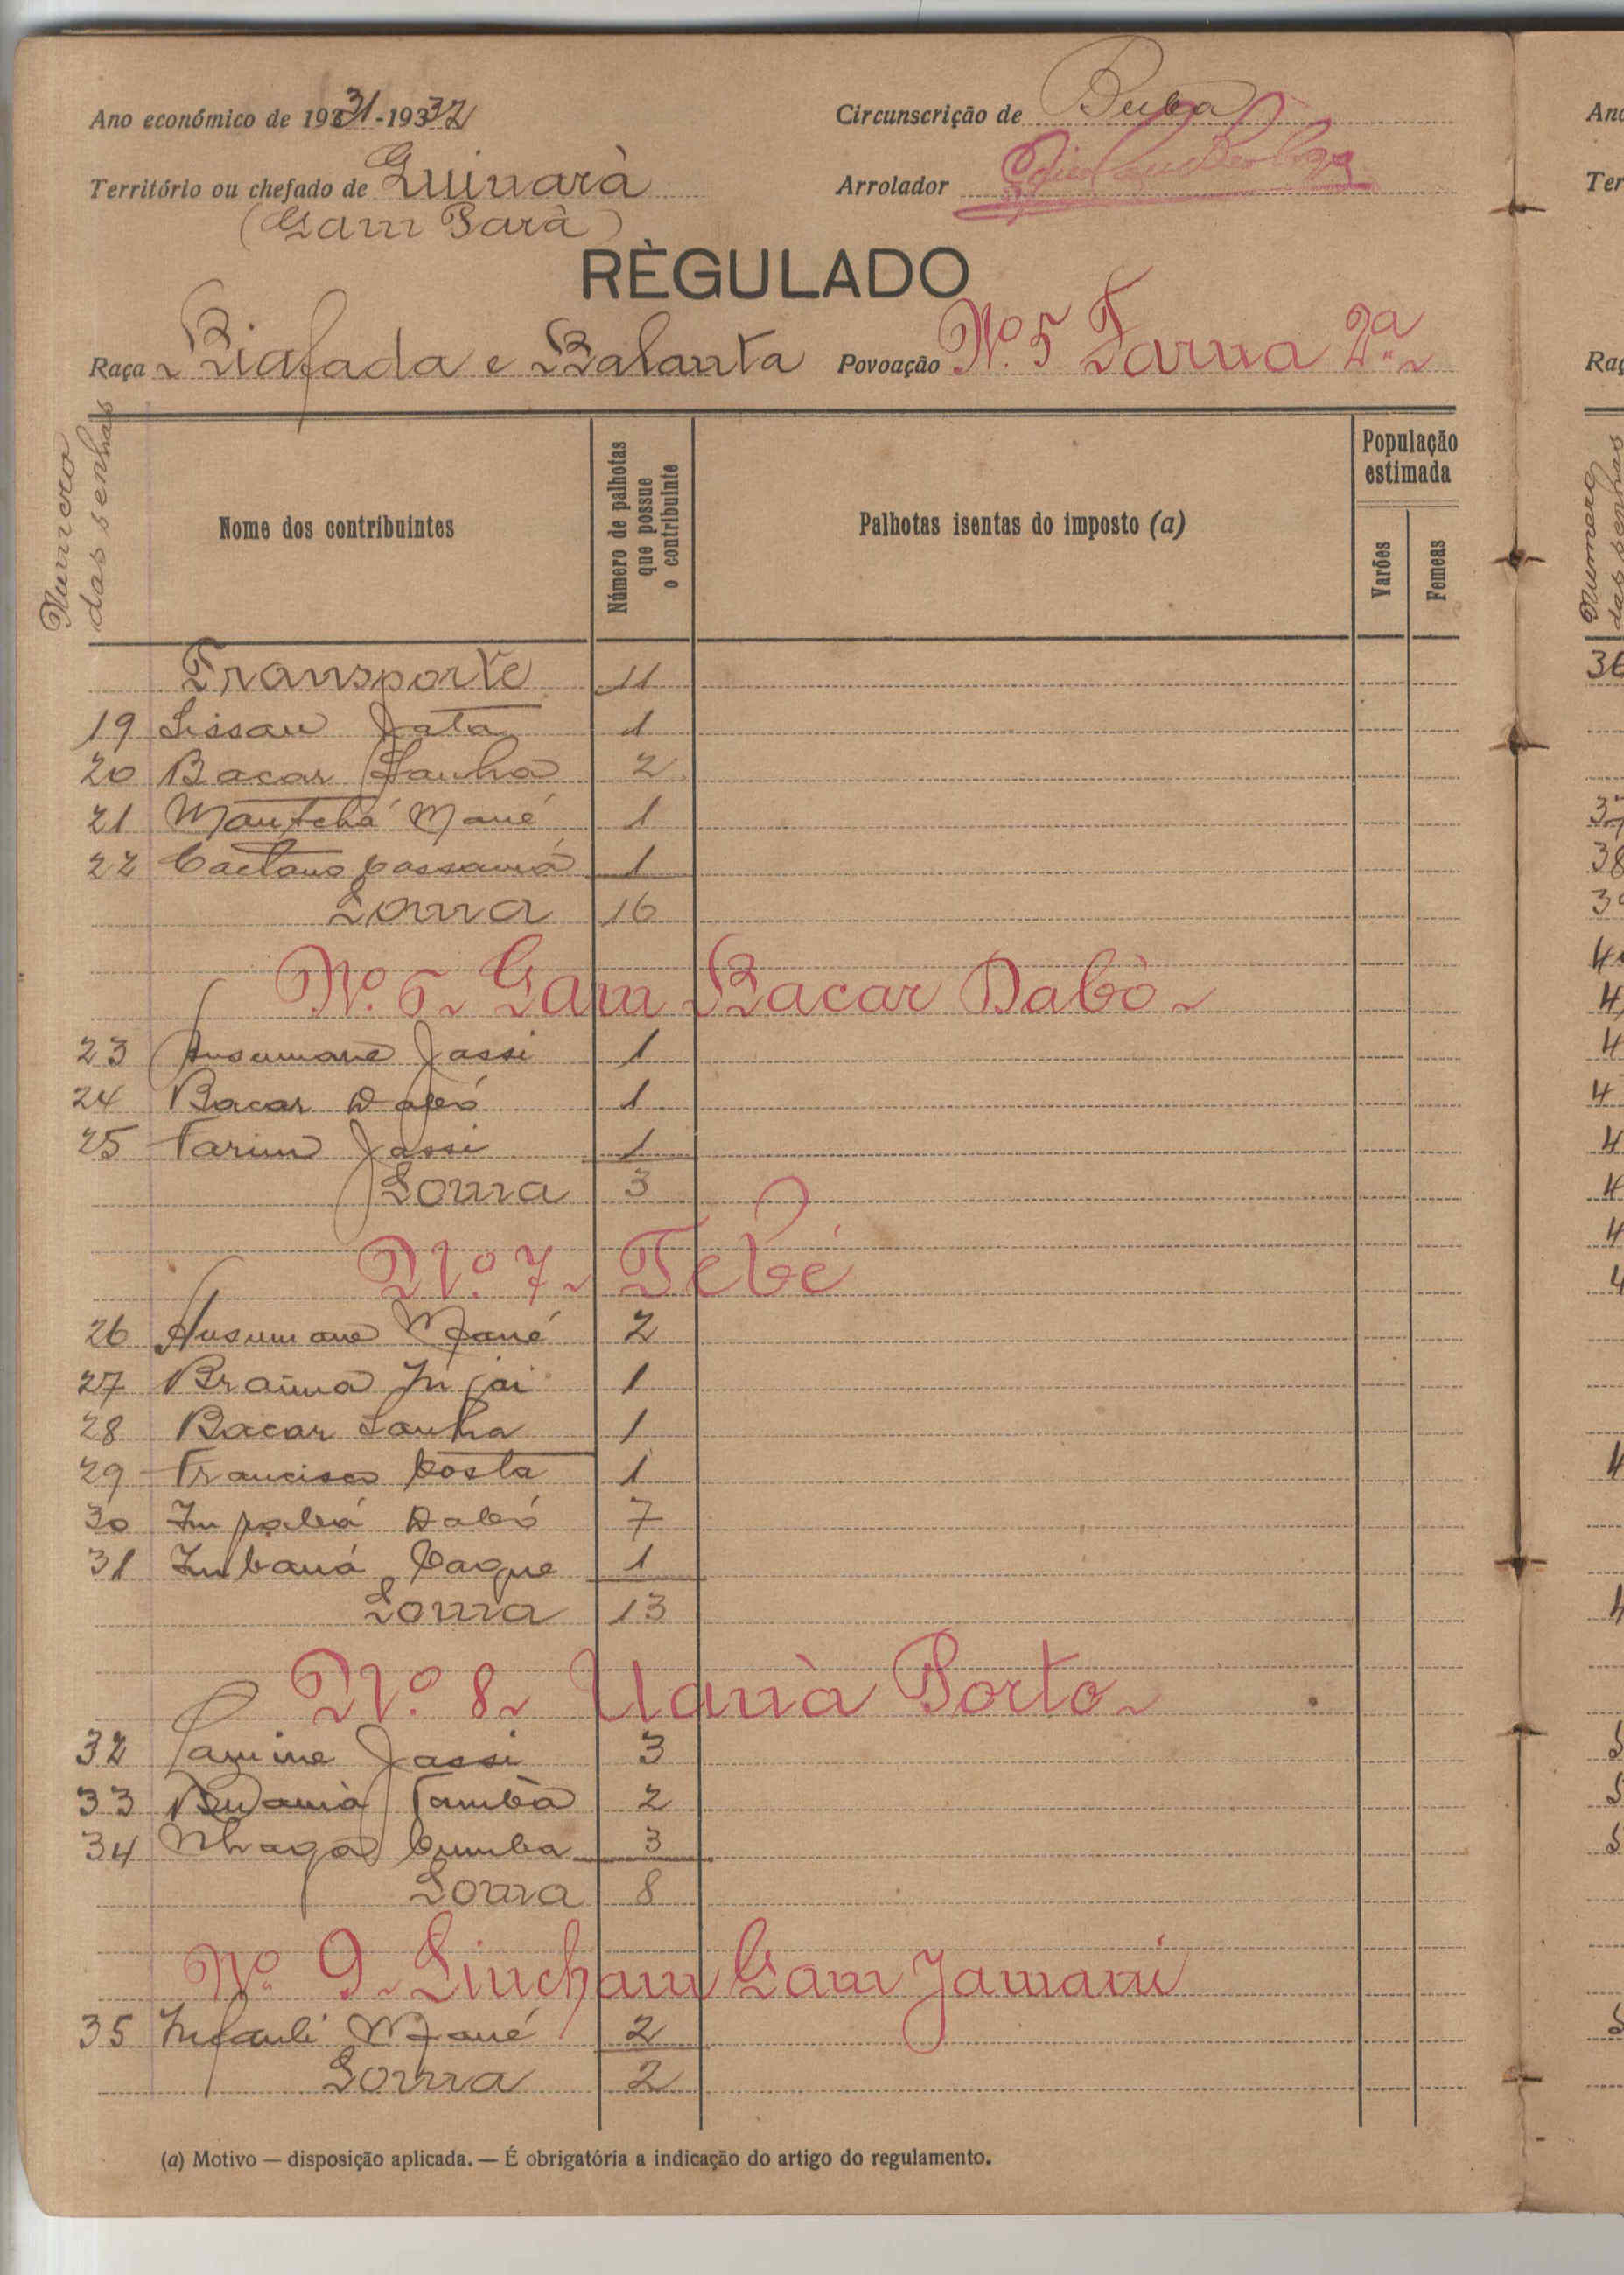 Ano económico de 1931-1932
Circunscrição de Buba
Território ou chefado de Quinará
Arrolador
(Gam Pará)
RÈGULADO
Raça Biafada e Balanta
Povoação Nº 5 Farna 2ª
Numero das senhas
Nome dos contribuintes
Número de palhotas que possue o contribuinte
Palhotas isentas do imposto (a)
População estimada
Varões
Femeas
Transporte 11
19 Sissau Jata 1
20 Bacar Sanhá 2
21 Mantchá Mané 1
22 Caetano Cassamá 1
Soma 16
Nº 6 Gam Bacar Dabó
23 Ansumane Jassi 1
24 Bacar Dabó 1
25 Farim Jassi 1
Soma 3
Nº 7 Tebé
26 Ansumane Mané 2
27 Braima Injai 1
28 Bacar Sanha 1
29 Francisco Costa 1
30 Dabó 7
31 Imbaná Caque 1
Soma 13
Nº 8 Uaná Porto
32 Lamine Jassi 3
33 2
34 Cumba 3
Soma 8
Nº 9 Sincham Gam Jamami
35 Infanli Mané 2
Soma 2
(a) Motivo — disposição aplicada. — É obrigatória a indicação do artigo do regulamento.